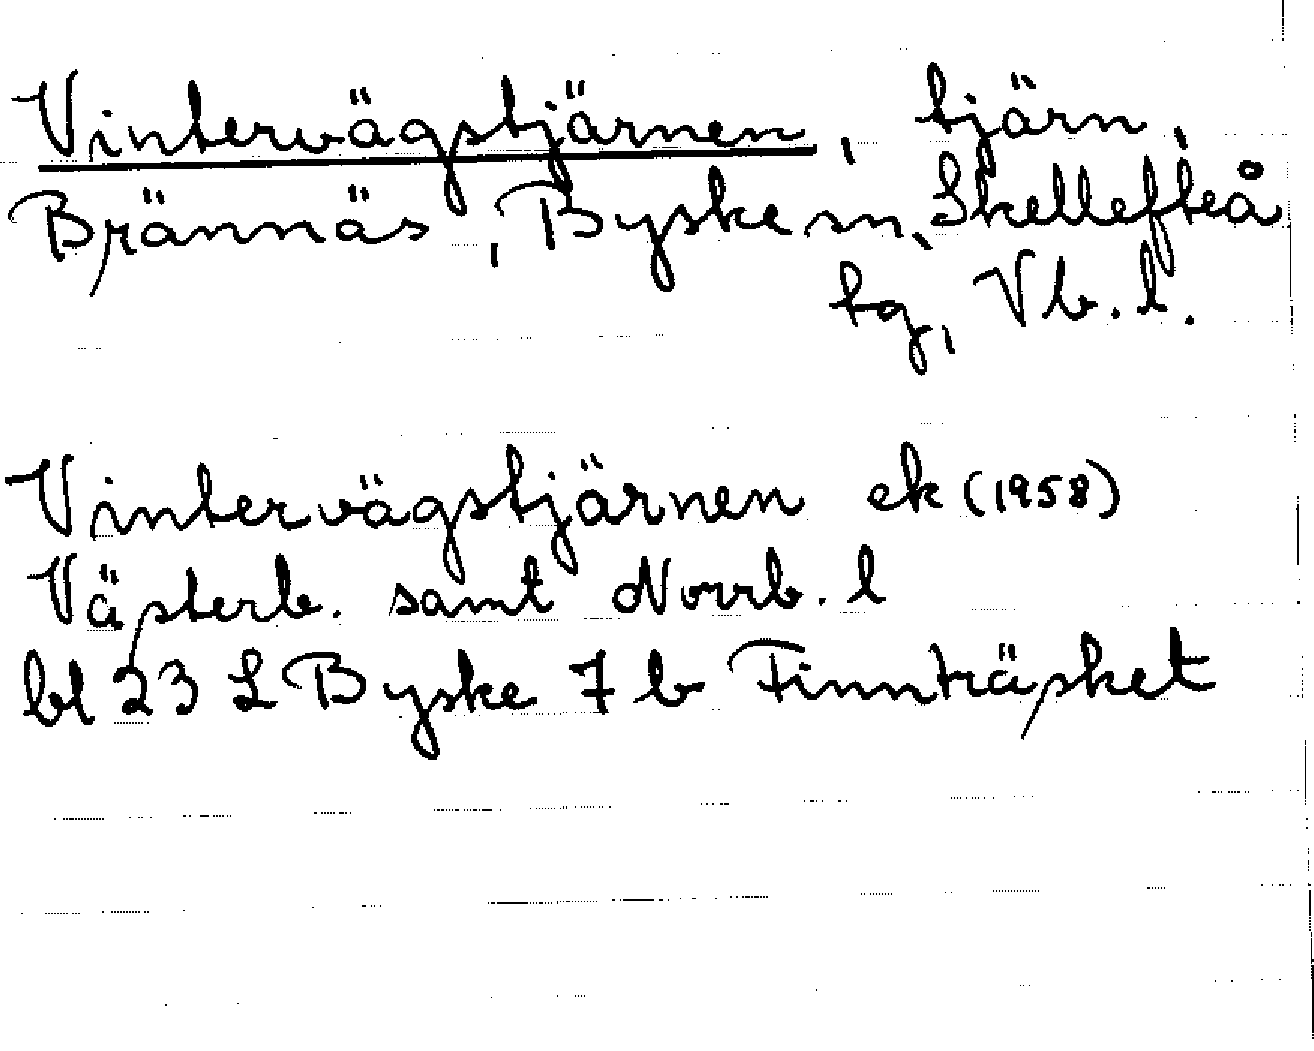 Vintervägstjärnen, tjärn,
Brännäs, Byske sn, Skellefteå
tg, Vb. l.
Vintervägstjärnen ek (1958)
Västerb. samt Norrb. l
bl 23 L Byske 7 b Finnträsket